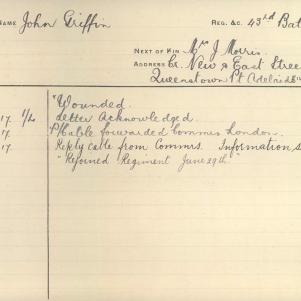 NAME John Griffin REG. &C. 43rd Bat
NEXT OF KIN Mrs J Morris.
ADDRESS Cr. New & East Stree
Queenstown Pt Adelaide
17. "Wounded.
17. Letter Acknowledged.
17. cable forwarded Commrs London.
17. Reply cable from Commrs. Information s
"Rejoined Regiment June 29th"